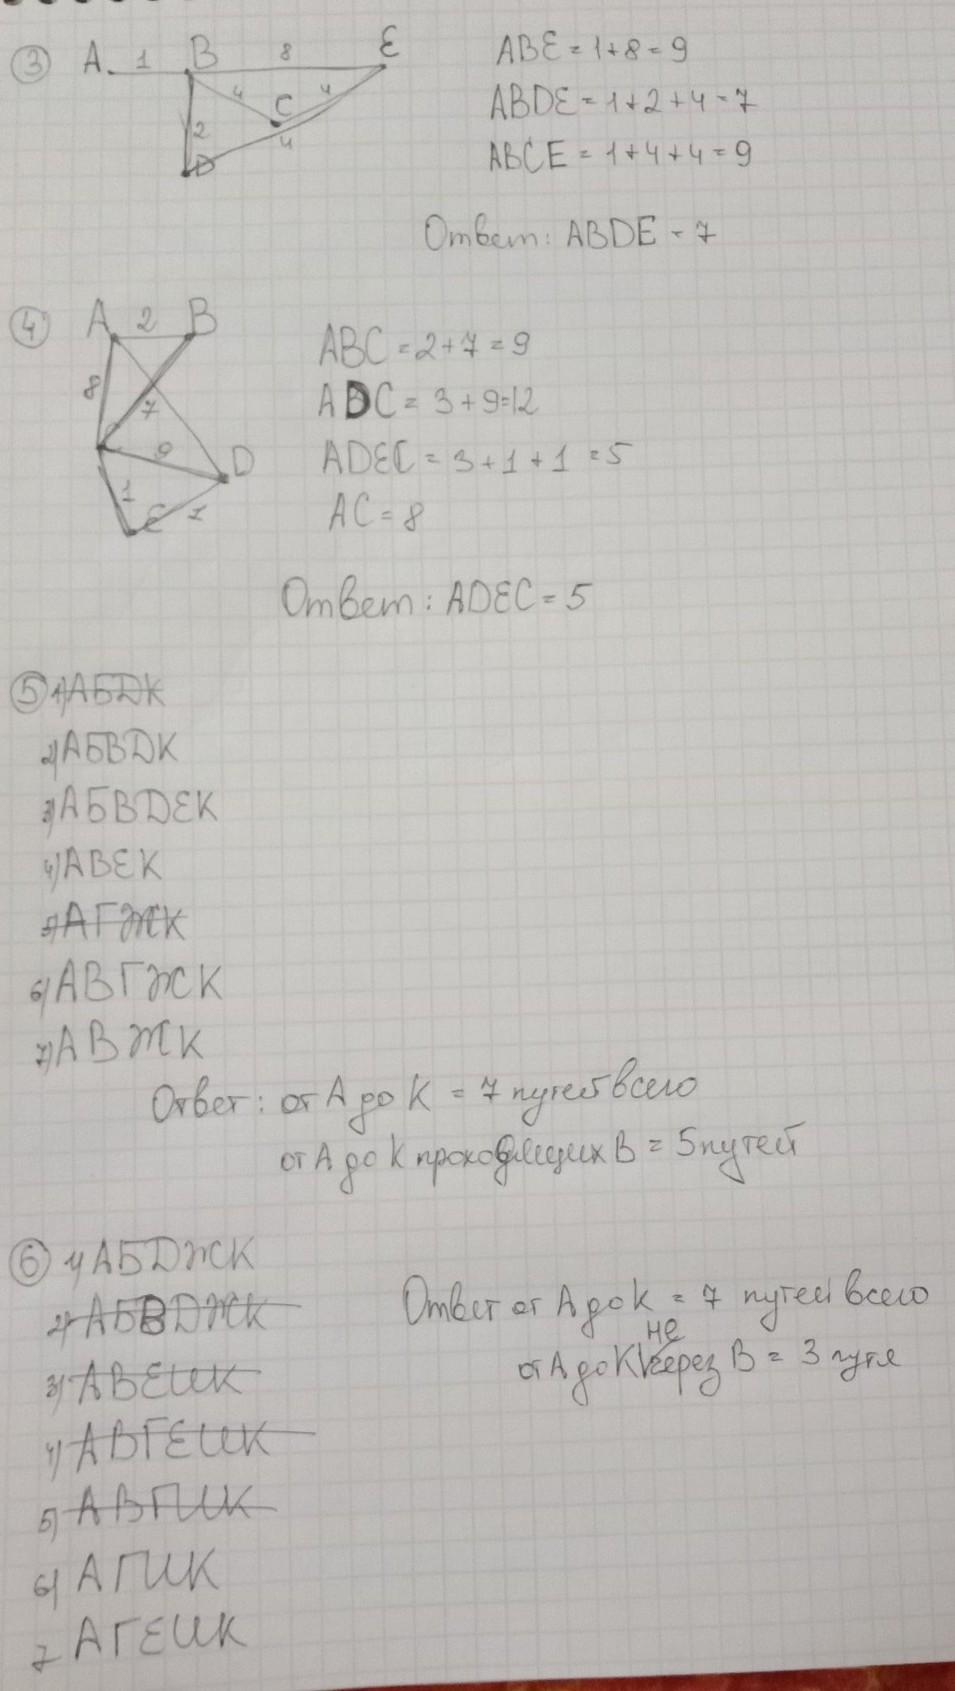 3 A 1 B 8 E
4 C 4
2 4
D
ABE = 1+8 = 9
ABDE = 1+2+4 = 7
ABCE = 1+4+4 = 9
Ответ: ABDE = 7
4 A 2 B
8 7
9 D
1 E 1
ABC = 2+7 = 9
ADC = 3+9=12
ADEC = 3+1+1 = 5
AC = 8
Ответ: ADEC = 5
5 1) АБДК
2) АБВДК
3) АБВДЕК
4) АВЕК
5) АГЖК
6) АВГЖК
7) АВЖК
Ответ: от А до К = 7 путей всего
от А до К проходящих В = 5 путей
6 1) АБДЖК
2) АБВДЖК
3) АВЕИК
4) АВГЕИК
5) АВГИК
6) АГИК
7 АГЕИК
Ответ от А до К = 7 путей всего
от А до К не через В = 3 путя